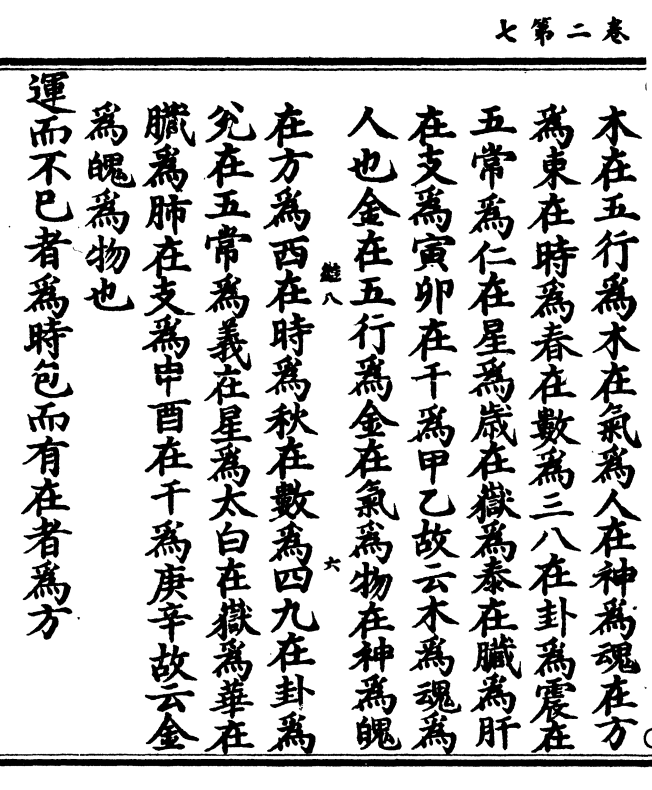 卷二第七
木在五行爲木在氣爲人在神爲魂在方
爲東在時爲春在數爲三八在卦爲震在
五常爲仁在星爲歲在嶽爲泰在臟爲肝
在支爲寅卯在干爲甲乙故云木爲魂爲
人也金在五行爲金在氣爲物在神爲魄
八 六
在方爲西在時爲秋在數爲四九在卦爲
兊在五常爲義在星爲太白在嶽爲華在
臟爲肺在支爲申酉在干爲庚辛故云金
爲魄爲物也
運而不已者爲時包而有在者爲方